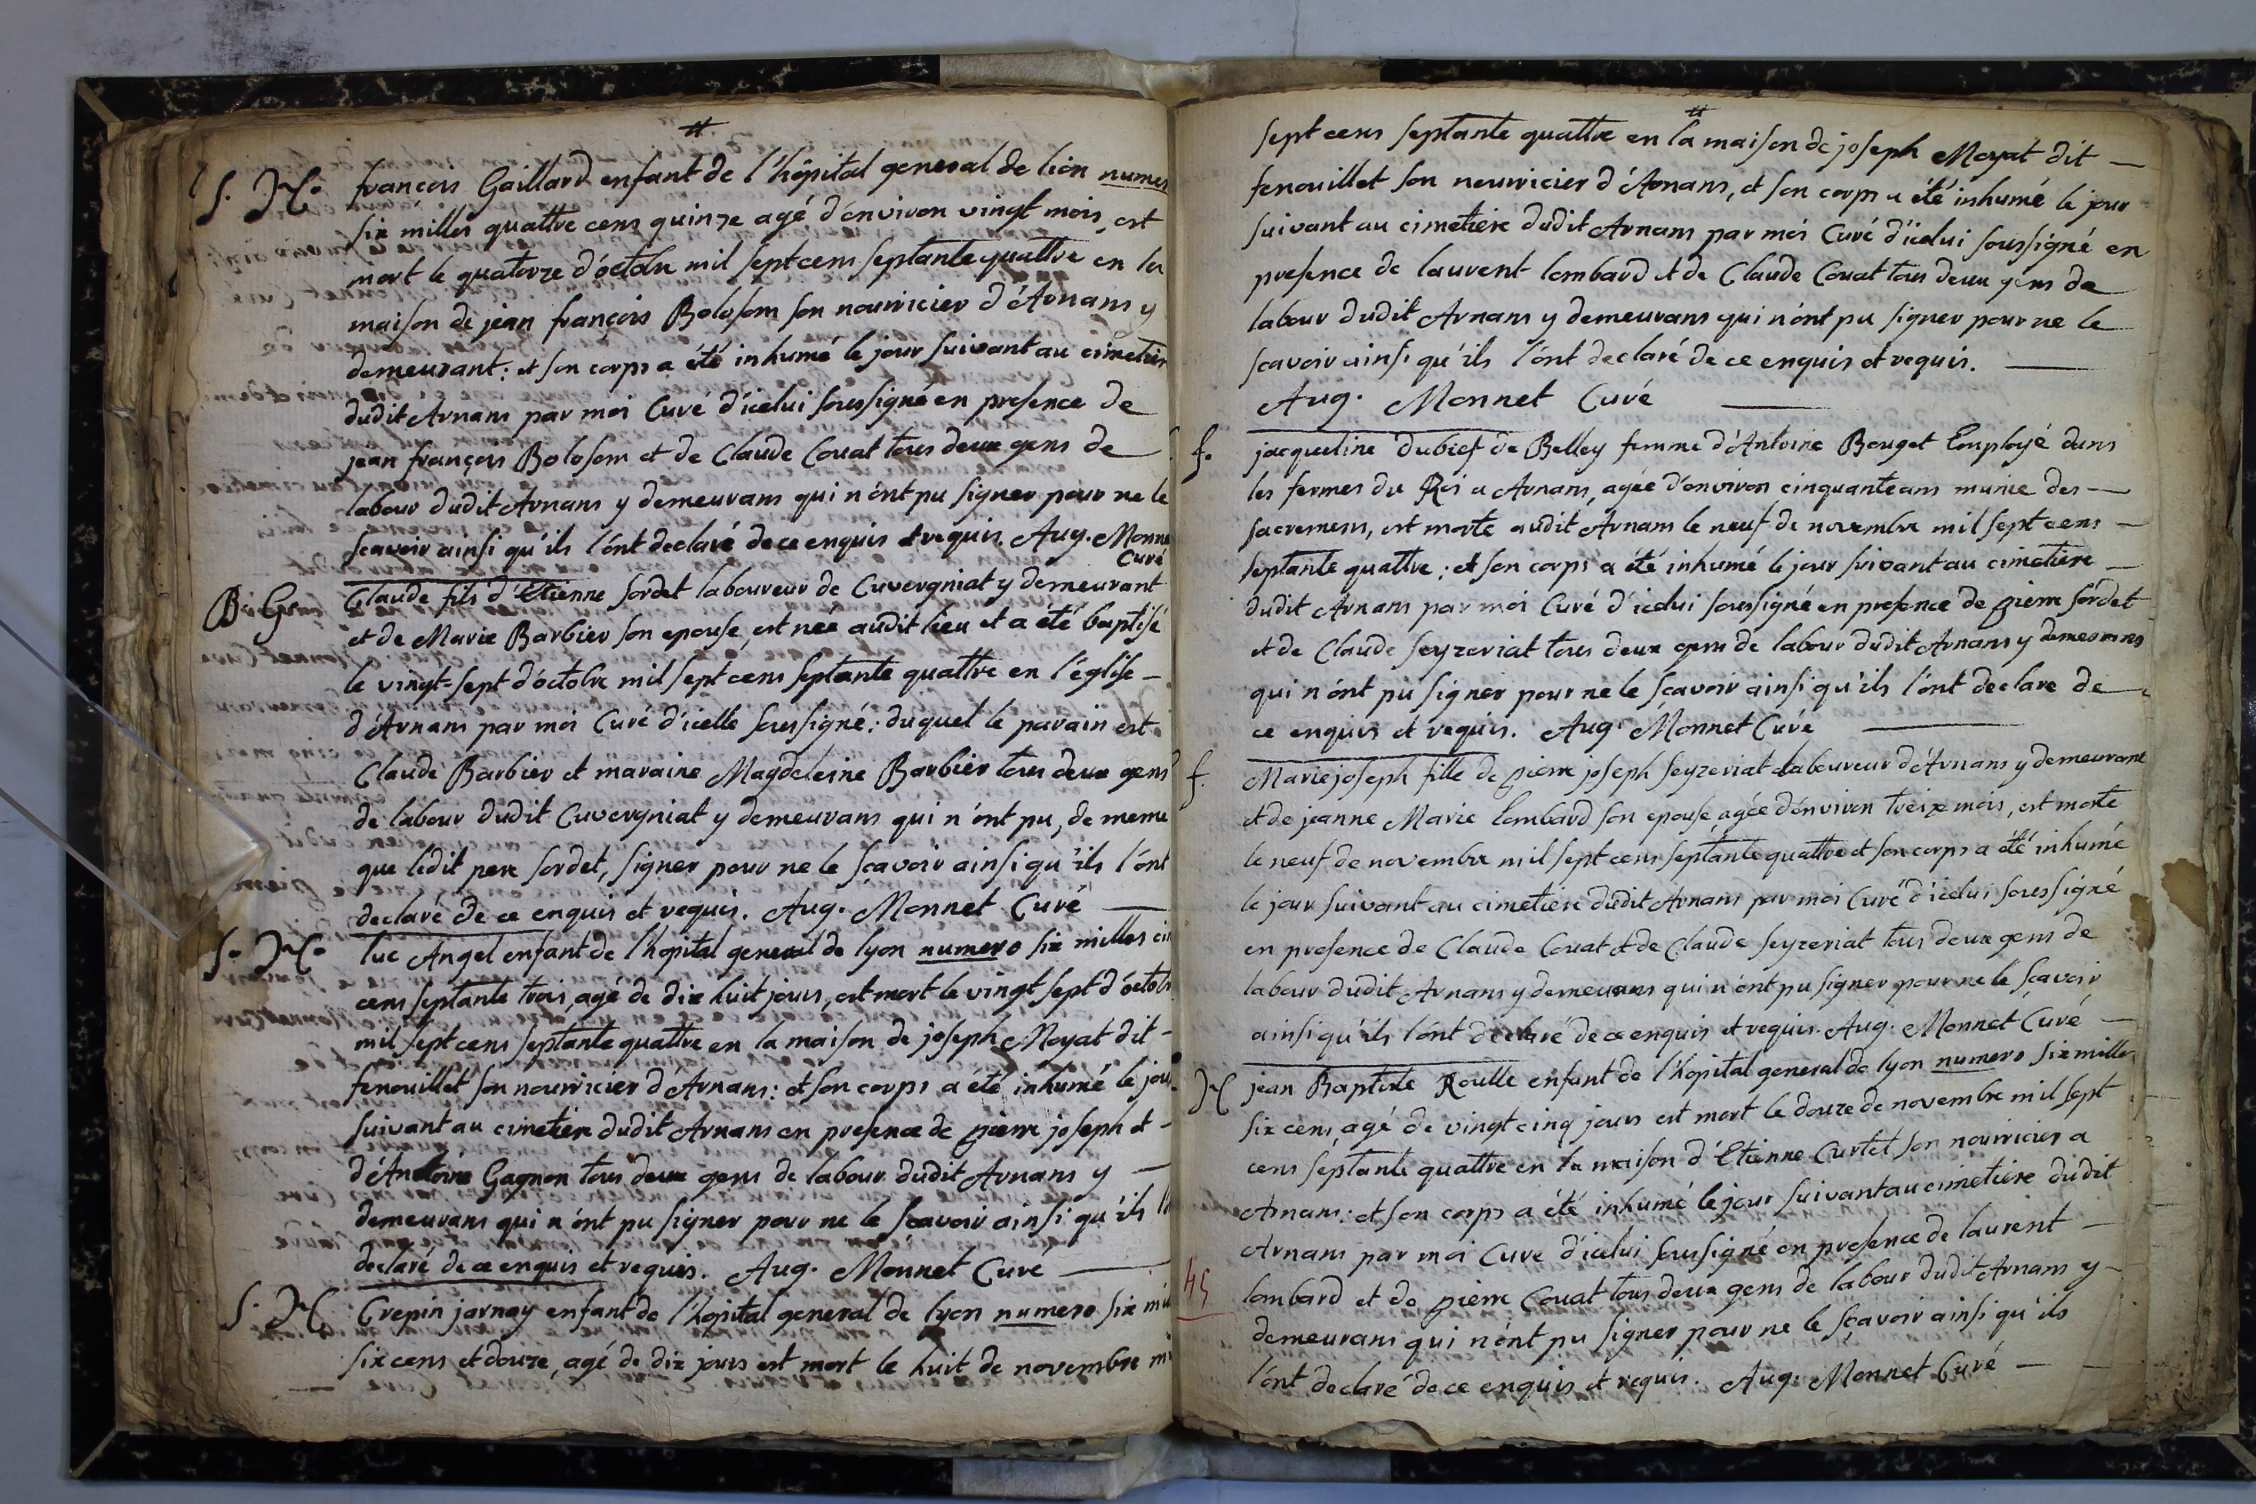 S. M. françois Gaillard enfant de l'hôpital general de lion numer
six milles quattre cens quinze agé d'environ vingt mois, est
mort le quatorze d'octobre mil sept cens septante quattre en la
maison de jean françois Bolosom son nouricier d'Arnans y
demeurant: et son corps a été inhumé le jour suivant au cimetier
dudit Arnans par moi Curé d'icelui soussigné en presence de
jean françois Bolosom et de Claude Couat tous deux gens de
labour dudit Arnans y demeurans qui n'ont pu signer pour ne le
scavoir ainsi qu'ils l'ont declaré de ce enquis et requis. Aug. Monne
Curé
B. G. Claude fils d'Etienne Sordet laboureur de Cuvergniat y demeurant
et de Marie Barbier son epouse, est née audit lieu et a été baptisé
le vingt-sept d'octobre mil sept cens septante quattre en l'église
d'Arnans par moi Curé d'icelle soussigné: duquel le parain est
Claude Barbier et maraine Magdeleine Barbier tous deux gens
de labour dudit Cuvergniat y demeurans qui n'ont pu, de meme
que ledit pere Sordet, signer pour ne le sçavoir ainsi qu'ils l'ont
declaré de ce enquis et requis. Aug. Monnet Curé
S. M. luc Angel enfant de l'hopital general de lyon numero six milles cin
cens septante trois, agé de dix huit jours, est mort le vingt sept d'octobr
mil sept cens septante quattre en la maison de joseph Moyat dit
fenouillet son nourricier d'Arnans: et son corps a été inhumé le jou
suivant au cimetiere dudit Arnans en presence de pierre joseph et
d'Antoine Gagnon tous deux gens de labour dudit Arnans y
demeurans qui n'ont pu signer pour ne le scavoir ainsi qu'ils l'
declaré de ce enquis et requis. Aug. Monnet Curé
S. M. Crepin jarnay enfant de l'hopital general de lyon numero six mil
six cens et douze, agé de dix jours est mort le huit de novembre mi
sept cens septante quattre en la maison de joseph Moyat dit
fenouillet son nourricier d'Arnans, et son corps a été inhumé le jour
suivant au cimetiere dudit Arnans par moi Curé d'icelui soussigné en
presence de laurent lombard et de Claude Couat tous deux gens de
labour dudit Arnans y demeurans qui n'ont pu signer pour ne le
scavoir ainsi qu'ils l'ont declaré de ce enquis et requis.
Aug. Monnet Curé
f. jacqueline dubief de Belley femme d'Antoine Bouget Employé dans
les fermes du Roi a Arnans, agée d'environ cinquante ans munie des
sacremens, est morte audit Arnans le neuf de novembre mil sept cens
septante quattre: et son corps a été inhumé le jour suivant au cimetiere
dudit Arnans par moi Curé d'icelui soussigné en presence de pierre Sordet
et de Claude Seyzeriat tous deux gens de labour dudit Arnans y demeurans
qui n'ont pu signer pour ne le scavoir ainsi qu'ils l'ont declare de
ce enquis et requis. Aug. Monnet Curé
f. Marie joseph fille de pierre joseph Seyzeriat laboureur d'Arnans y demeurant
et de jeanne Marie lombard son epouse agée d'environ treize mois, est morte
le neuf de novembre mil sept cens septante quattre et son corps a été inhumé
le jour suivant au cimetiere dudit Arnans par moi Curé d'icelui soussigné
en presence de Claude Couat et de Claude Seyzeriat tous deux gens de
labour dudit Arnans y demeurans qui n'ont pu signer pour ne le scavoir
ainsi qu'ils l'ont declaré de ce enquis et requis. Aug. Monnet Curé
M jean Baptiste Roulle enfant de l'hopital general de lyon numero six milles
six cens, agé de vingt cinq jours est mort le douze de novembre mil sept
cens septante quattre en la maison d'Etienne Curtet son nouricier a
Arnans: et son corps a été inhumé le jour suivant au cimetiere dudit
Arnans par moi Curé d'icelui soussigné en presence de laurent
45
lombard et de pierre Couat tous deux gens de labour dudit Arnans y
demeurans qui n'ont pu signer pour ne le sçavoir ainsi qu'ils
l'ont declaré de ce enquis et requis. Aug. Monnet Curé